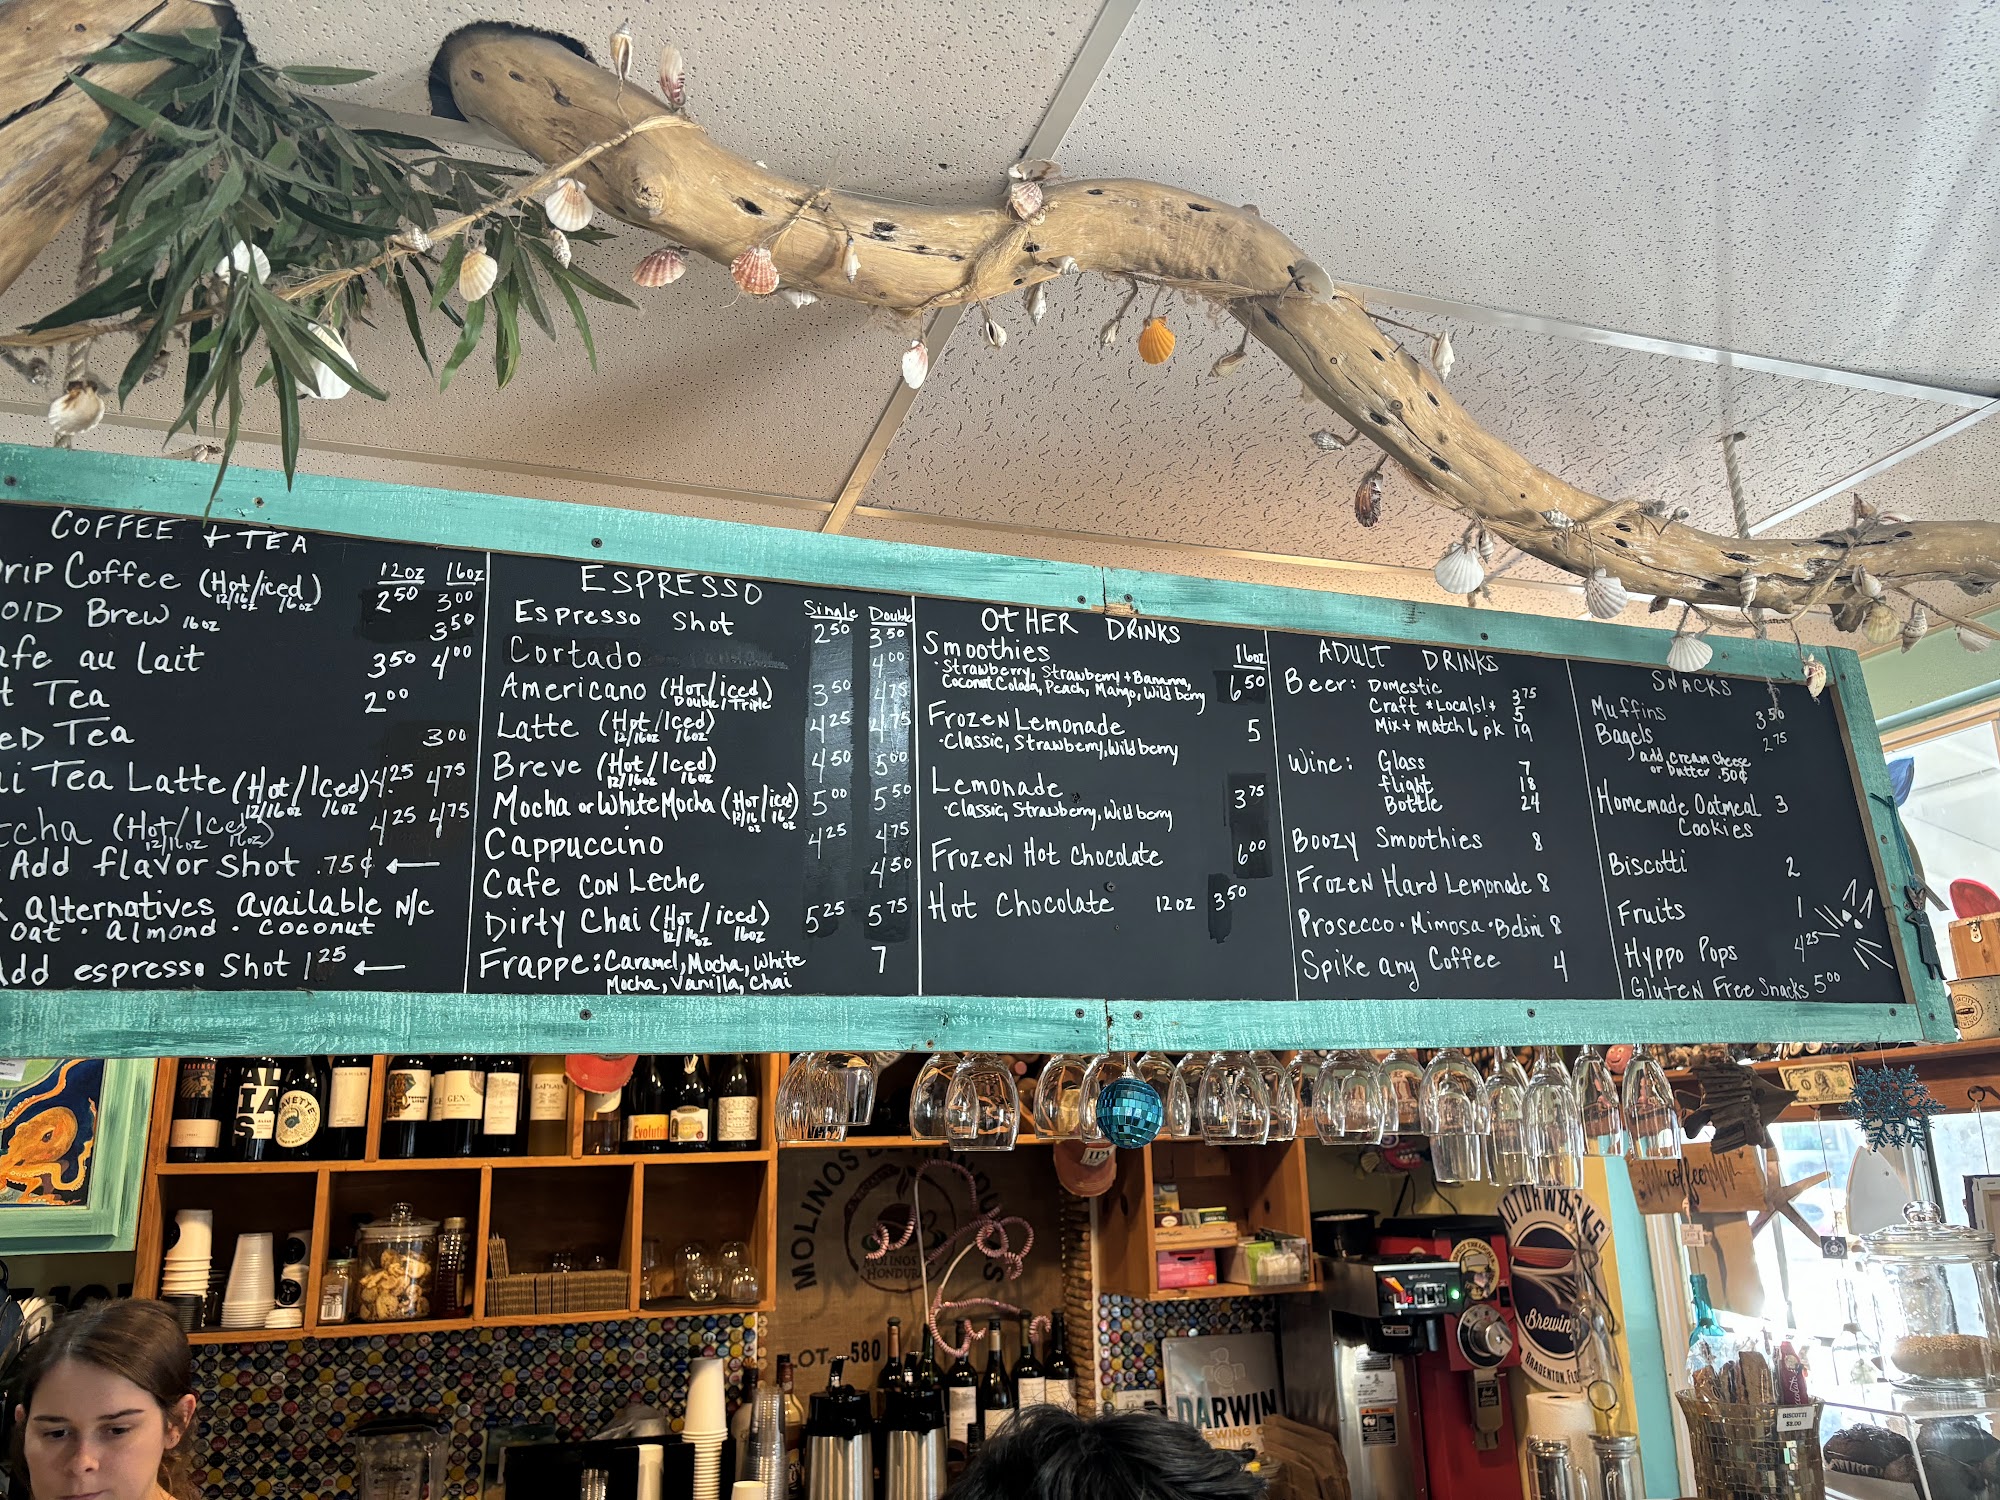 COFFEE + TEA
12oz 16oz
rip Coffee (Hot/iced) 2⁵⁰ 3⁰⁰
12/16oz 16oz
old Brew 16oz 3⁵⁰
afe au lait 3⁵⁰ 4⁰⁰
t Tea 2⁰⁰
ed Tea 3⁰⁰
i Tea Latte (Hot/Iced) 4²⁵ 4⁷⁵
12/16oz 16oz
tcha (Hot/Iced) 4²⁵ 4⁷⁵
12/16oz 16oz
Add flavor shot .75¢ ←
alternatives available N/C
oat · almond · coconut
dd espresso shot 1²⁵ ←
ESPRESSO
Single Double
Espresso Shot 2⁵⁰ 3⁵⁰
Cortado 4⁰⁰
Americano (Hot/iced) 3⁵⁰ 4⁷⁵
Double/Triple
Latte (Hot/Iced) 4²⁵ 4⁷⁵
12/16oz 16oz
Breve (Hot/Iced) 4⁵⁰ 5⁰⁰
12/16oz 16oz
Mocha or White Mocha (Hot/iced) 5⁰⁰ 5⁵⁰
12/16 oz 16 oz
Cappuccino 4²⁵ 4⁷⁵
Cafe con Leche 4⁵⁰
Dirty Chai (Hot/iced) 5²⁵ 5⁷⁵
12/16oz 16oz
Frappe: Caramel, Mocha, White 7
Mocha, Vanilla, Chai
OTHER DRINKS
Smoothies 16oz
·Strawberry, Strawberry + Banana, 6⁵⁰
Coconut Colada, Peach, Mango, Wild berry
Frozen Lemonade 5
·Classic, Strawberry, Wild berry
Lemonade 3⁷⁵
·Classic, Strawberry, Wild berry
Frozen Hot Chocolate 6⁰⁰
Hot Chocolate 12oz 3⁵⁰
ADULT DRINKS
Beer: Domestic 3⁷⁵
Craft *Locals!* 5
Mix + match 6 pk 19
Wine: Glass 7
flight 18
Bottle 24
Boozy Smoothies 8
Frozen Hard Lemonade 8
Prosecco · Mimosa · Belini 8
Spike any Coffee 4
SNACKS
Muffins 3⁵⁰
Bagels 2⁷⁵
add cream cheese
or butter .50¢
Homemade Oatmeal 3
Cookies
Biscotti 2
Fruits 1
Hyppo Pops 4²⁵
Gluten Free Snacks 5⁰⁰
Evolution
MOLINOS DE HONDURAS
MOLINOS
HONDURAS
LOT 580
DARWIN
BREWING CO
MOTORWORKS
Brewing
BRADENTON, FLO
coffee
BISCOTTI
$2.00